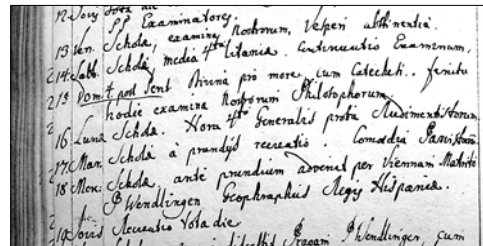 12. Jovis tota die
PP Examinatores.
13 Ven. Schola, examina Nostrorum, Vesperi abstinentia.
14. Sabb. Schola media 4ta Litaniæ. Continuatio Examinum.
15 Dom. 4. post Pent Divina pro more, cum Catecheti.. finita
hodie examina Nostrorum Philosophorum.
16. Lunæ Schola. Hora 4ta Generalis proba Rudimentistarum.
17. Mar. Schola à prandijs recreatio. Comœdia
18 Mer. Schola, antè prandium advenit per Viennam Madrito
P Wendlingen Geophraphus Regis Hispaniæ.
19 Jovis Recreatio tota die
Pragam P Wendlingen, cum